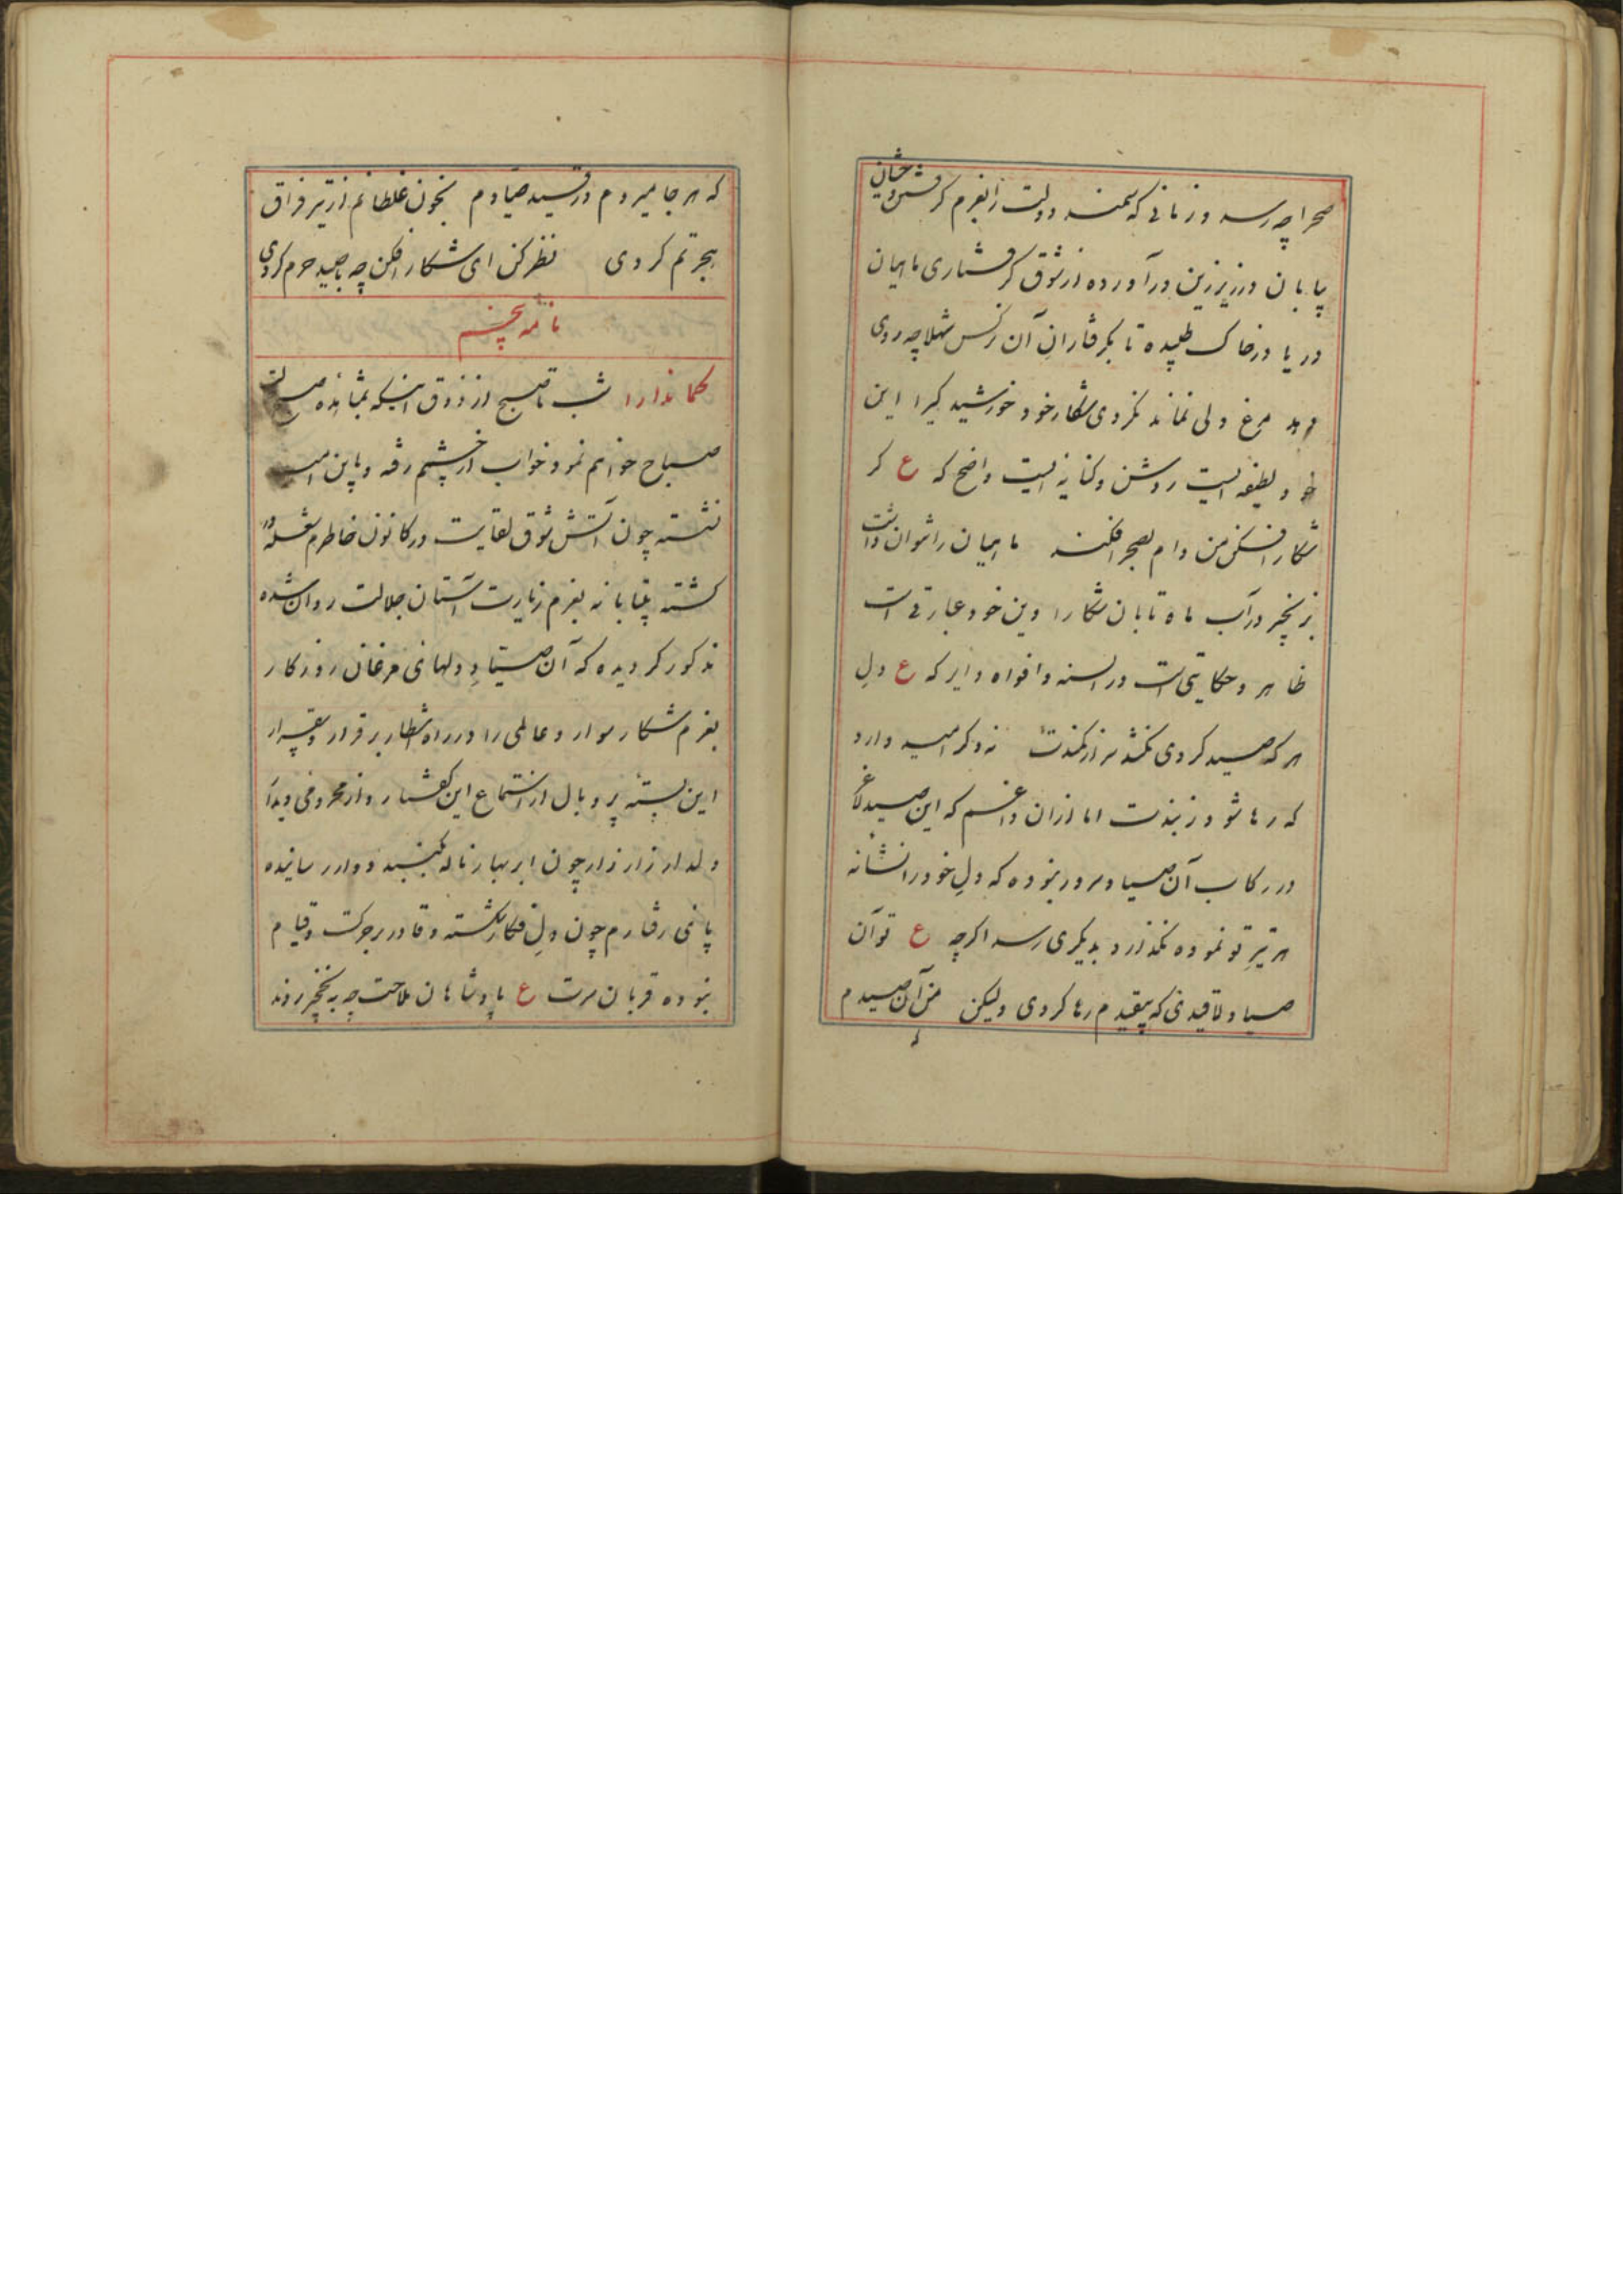 صحرا چه رسد و زمانی که سمند دولت را بغرم گرفتن وحشیان
پابان در زیر زین در آورده از شوق گرفتاری ماهیان
دریا در خاک طپیده تا بگرفتاران آن نرگس شهلا چه روی
دهد مرغ ولی نماند نکردی شکار خود خورشید گیرا این
خود لطیفه ایست روشن و کنایه ایست واضح که ع گر
شکار افکن من دام بصحرا فکند ماهیان را نتوان داشت
بزنجیر در آب ماه تابان شکارا وین خود عبارتی است
ظاهر و حکایتی است در السنه و افواه دایر که ع دل
هر که صید کردی نکشد سر از کمندت نه دگر امید دارد
که رها شود ز بندت اما ازان داغم که این صید لاغر
در رکاب آن صیاد سرور نبوده که دل خود را نشانه
هر تیر تو نموده نگذارد بدیگری رسد اگرچه ع تو آن
صیاد لاقیدی که بیقیدم رها کردی ولیکن من آن صیدم
که هر جا میروم در قید صیادم بخون غلطانم از تیر فراق
هجرتم کردی نظر کن ای شکار افکن چه با صید حرم کردی
نامه پنجم
کماندارا شب تا صبح از ذوق اینکه بمشاهده
صباح خواهم نمود خواب از چشم رفته و باین امید
نشسته چون آتش شوق لقایت در کانون خاطرم شعله ور
گشته بیتابانه بغرم زیارت آستان جلالت روان شده
مذکور گردیده که آن صیاد دلهای مرغان روزگار
بغرم شکار سوار و عالمی را در راه انتظار بر قرار و بیقرار
این بسته پر و بال از استماع این گفتار و از محرومی دیدار
دلدار زار زار چون ابر بهار ناله بگنبد دوار رسانیده
پای رفتارم چون دل فکار شکسته و قادر بر حرکت و قیام
نبوده قربان سرت ع پادشاهان ملاحت چه به نخجیر روند